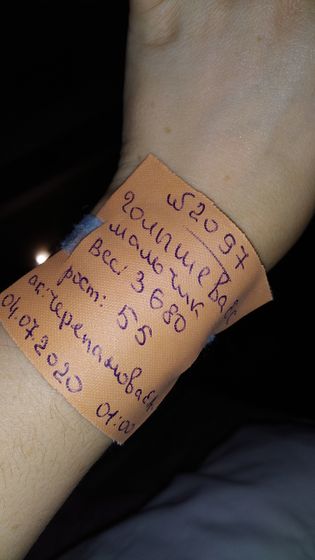 №2097
Голышева
мальчик
Вес: 3680
рост: 55
ак: Черепанова
04.07.2020 01:00